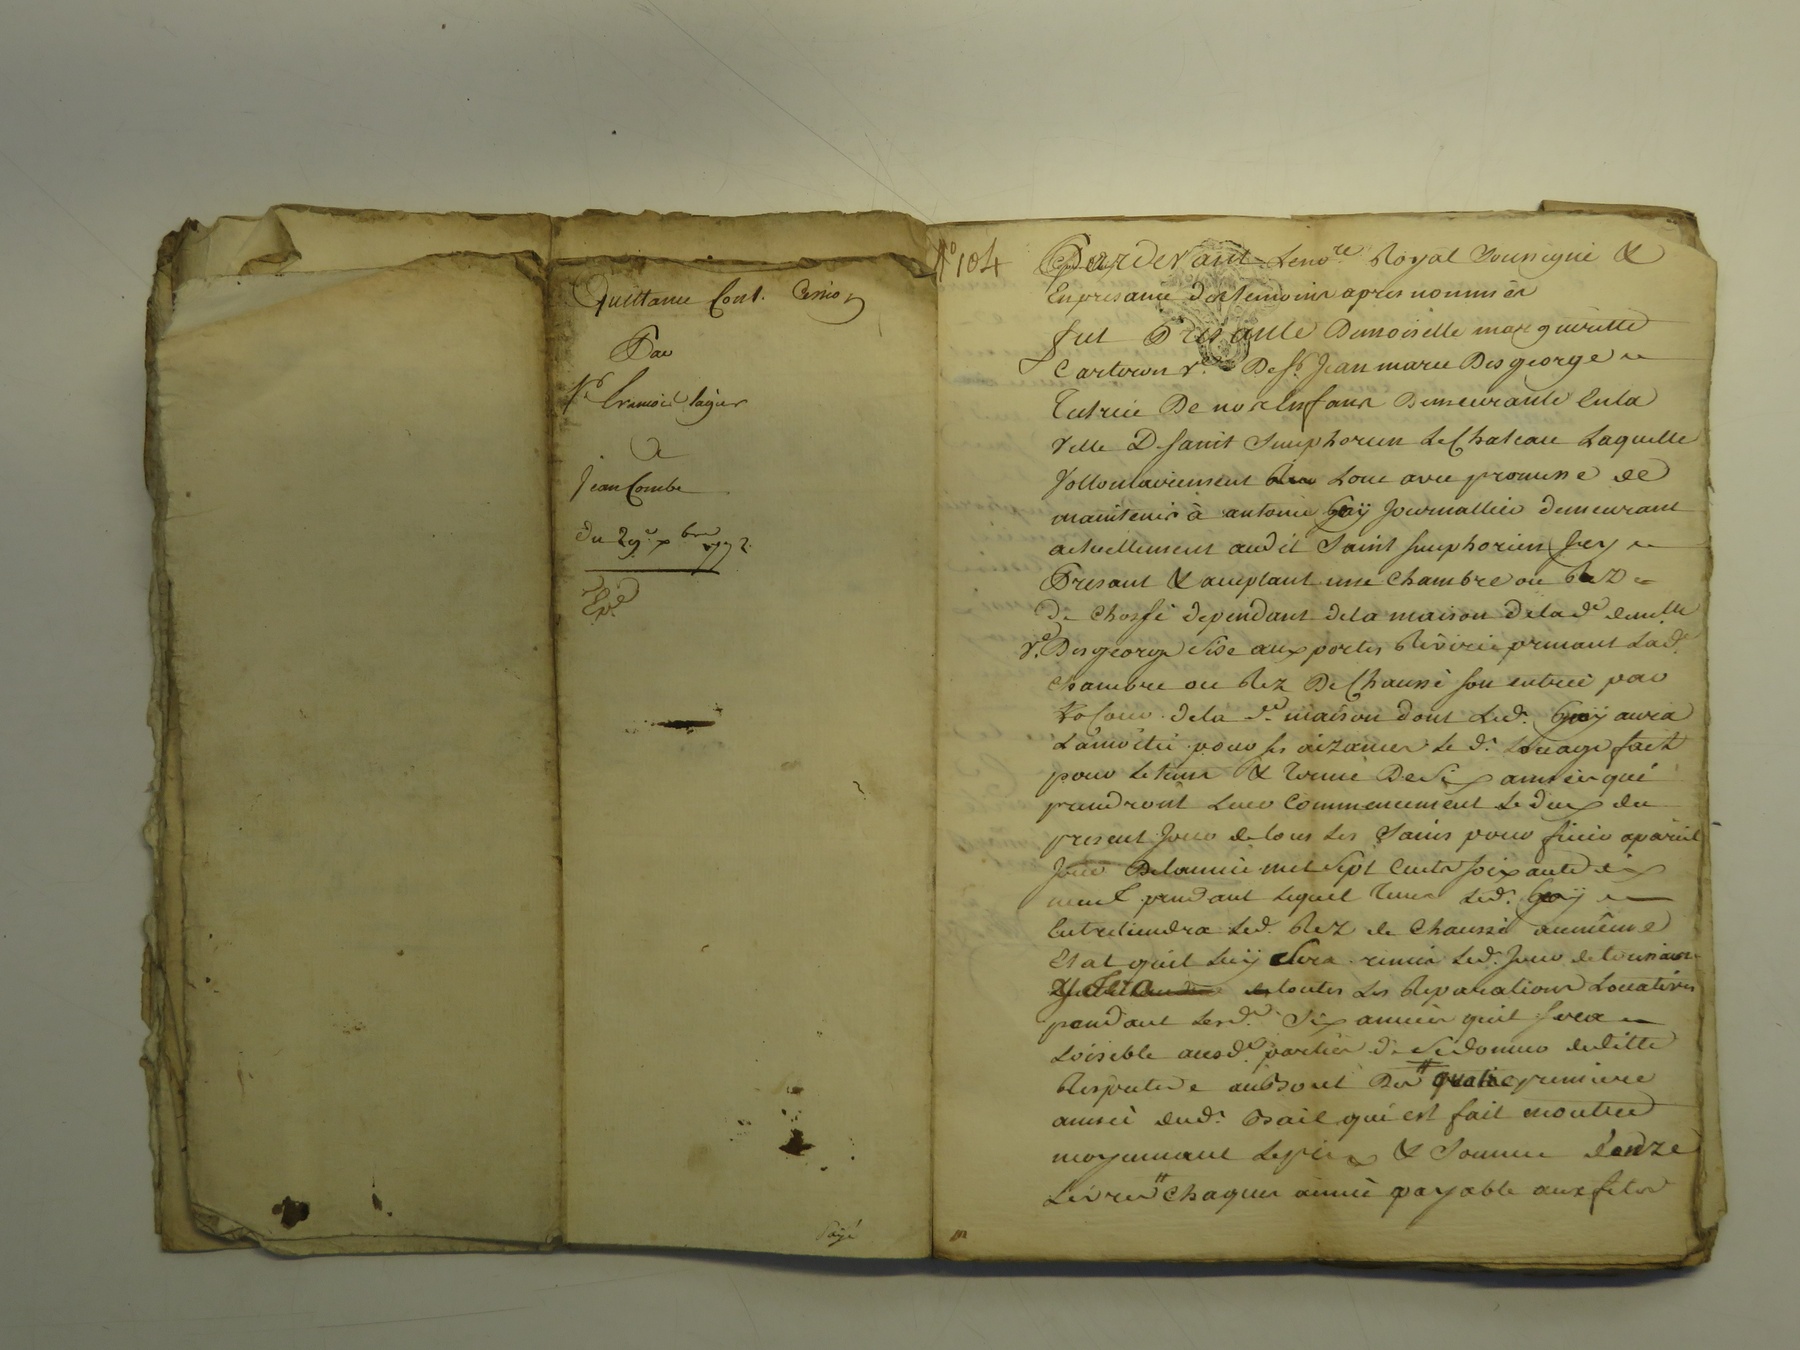 Quittance Cont. Cession
Par
Sr. francois lager
A
Jean Combe
du 29e. xbre 1772.
Exp.ée
Payé
N° 104
Pardevant Lenore. Royal Soussigné &
En presance des temoins apres nommés
fut Presante Demoiselle margueritte
Carteron ve. De Sr. Jean marie Desgeorge
Tutrice De nos Enfans Demeurante En la
ville D. Saint Simphorien Le Chateau Laquelle
Vollontairement Loue avec promesse de
maintenir à antoine Goÿ Journallier demeurant
actuellement audit Saint simphorien Icy
Presant & aceptant une chambre ou Rez
De Chossé dependant de la maison de lade. demlle
ve. Desgeorge Size aux portes Riviere prenant Lade.
Chambre ou Rez De Chaussé son entrée par
La Cour de la de. maison dont Led. Goÿ aura
La moitié pour ses aizances le d. Louage fait
pour le tems & terme De Six années qui
prendront Leur Commencement Le dux du
present Jour de tous Les Saints pour finir apareil
Jour De lannée mil Sept Cents Soixante dix
neuf pendant lequel tems Led. Goÿ
Entretiendra Led. Rez de Chaussé au même
Etat quil Luÿ Sera remis Led. Jour de toussaint
y fera toutes Les Reparations Locatives
pendant Lesd. Six années quil Sera
Loisible ausd. parties de Se donner de ditte
Respective au bout Des quatre premiere
année dud. Bail qui est fait moutre
moyennant Leprix & Somme donze
Livres chaques année payable aux fetes